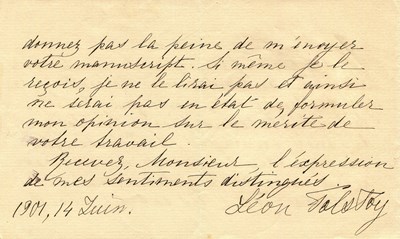 donnez pas la peine de m'envoyer
votre manuscript. Si même je le
reçois, je ne le lirai pas et ainsi
ne serai pas en état de formuler
mon opinion sur le mérite de
votre travail.
Recevez, Monsieur, l'éxpression
de mes sentiments distingués
1901, 14 Juin. Léon Tolstoy